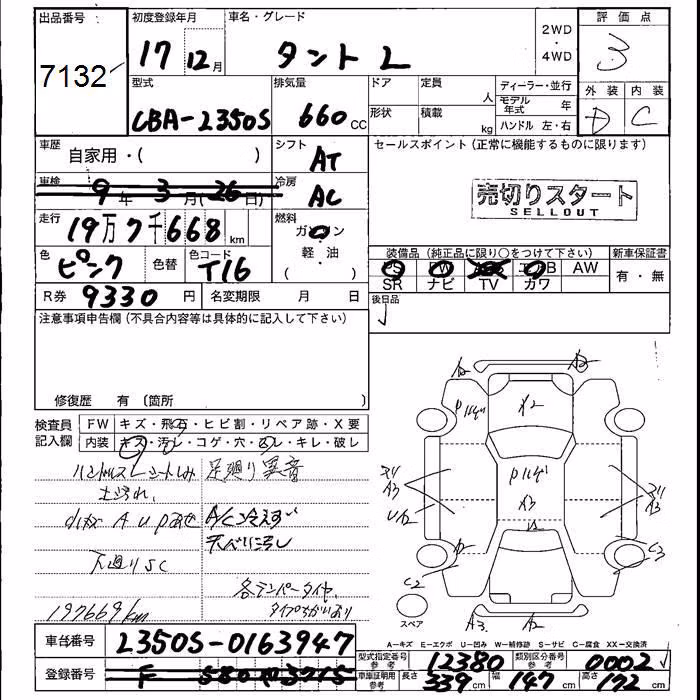 出品番号
7132
初度登録年月
17 12月
車名・グレード
タント L
2WD
・
4WD
評価点
3
外装 内装
D C
型式
CBA-L350S
排気量
660 CC
ドア 定員
人
形状 積載
kg
ディーラー・並行
モデル年式 年
ハンドル 左・右
車歴
自家用・( )
シフト
AT
セールスポイント(正常に機能するものに限ります)
車検
9年 3月(26日)
冷房
AC
売切りスタート
SELLOUT
走行
19万7千668 km
燃料
ガソリン
軽・油
( )
色
ピンク
色替
色コード
T16
装備品(純正品に限り○をつけて下さい)
PS PW ABS エアB AW
SR ナビ TV カワ
新車保証書
有・無
R券 9330 円
名変期限 月 日
後日品
注意事項申告欄(不具合内容等は具体的に記入して下さい)
修復歴 有〔箇所
検査員
記入欄
FW キズ・飛石・ヒビ割・リペア跡・X要
内装 キズ・汚レ・コゲ・穴・凹レ・キレ・破レ
ハンドルスレ シートしみ
足廻り異音
土汚れ
A/C冷えず
天ベリ汚レ
下廻りSC
各テンパータイヤ
タイプちがいあり
197669km
A2
A2
A3
U A2
A2
A3
C2
C3
A3
A2
スペア
A=キズ E=エクボ U=凹み W=補修跡 S=サビ C=腐食 XX=交換済
車台番号 L350S-0163947
登録番号
型式指定番号
参考
12380
類別区分番号
参考
0002
車庫証明用
参考
長さ 339 cm 幅 147 cm 高さ 172 cm